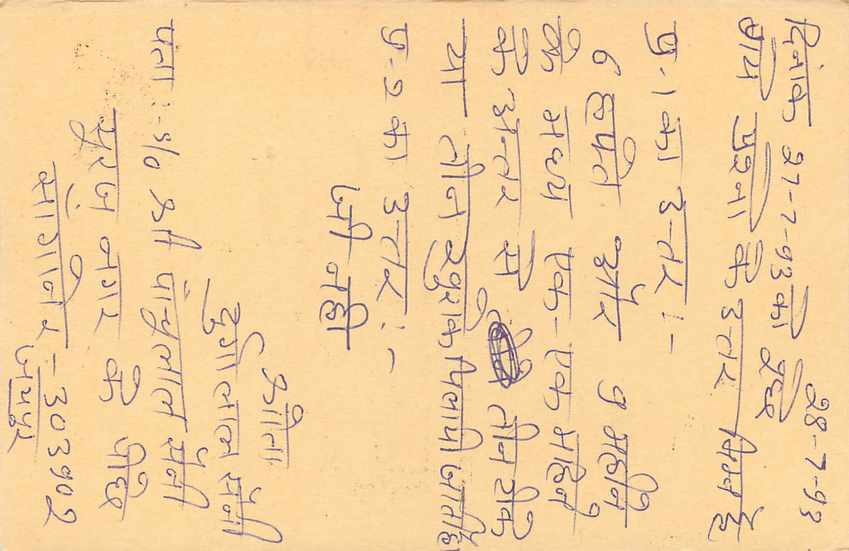 28-7-93
दिनांक 27-7-93 को पूछे
गये प्रश्नो के उत्तर निम्न है
प्र. 1 का उत्तर :-
6 हफ्ते और 9 महीने
के मध्य एक-एक महिने
के अन्तर से तीन टीके
या तीन खुराके पिलायी जाती है
प्र. 2 का उत्तर :-
जी नही
श्रोता
दुर्गा लाल सैनी
पता :- S/o श्री पांचुलाल सैनी
सुरज नगर के पीछे
सांगानेर - 303902
जयपुर